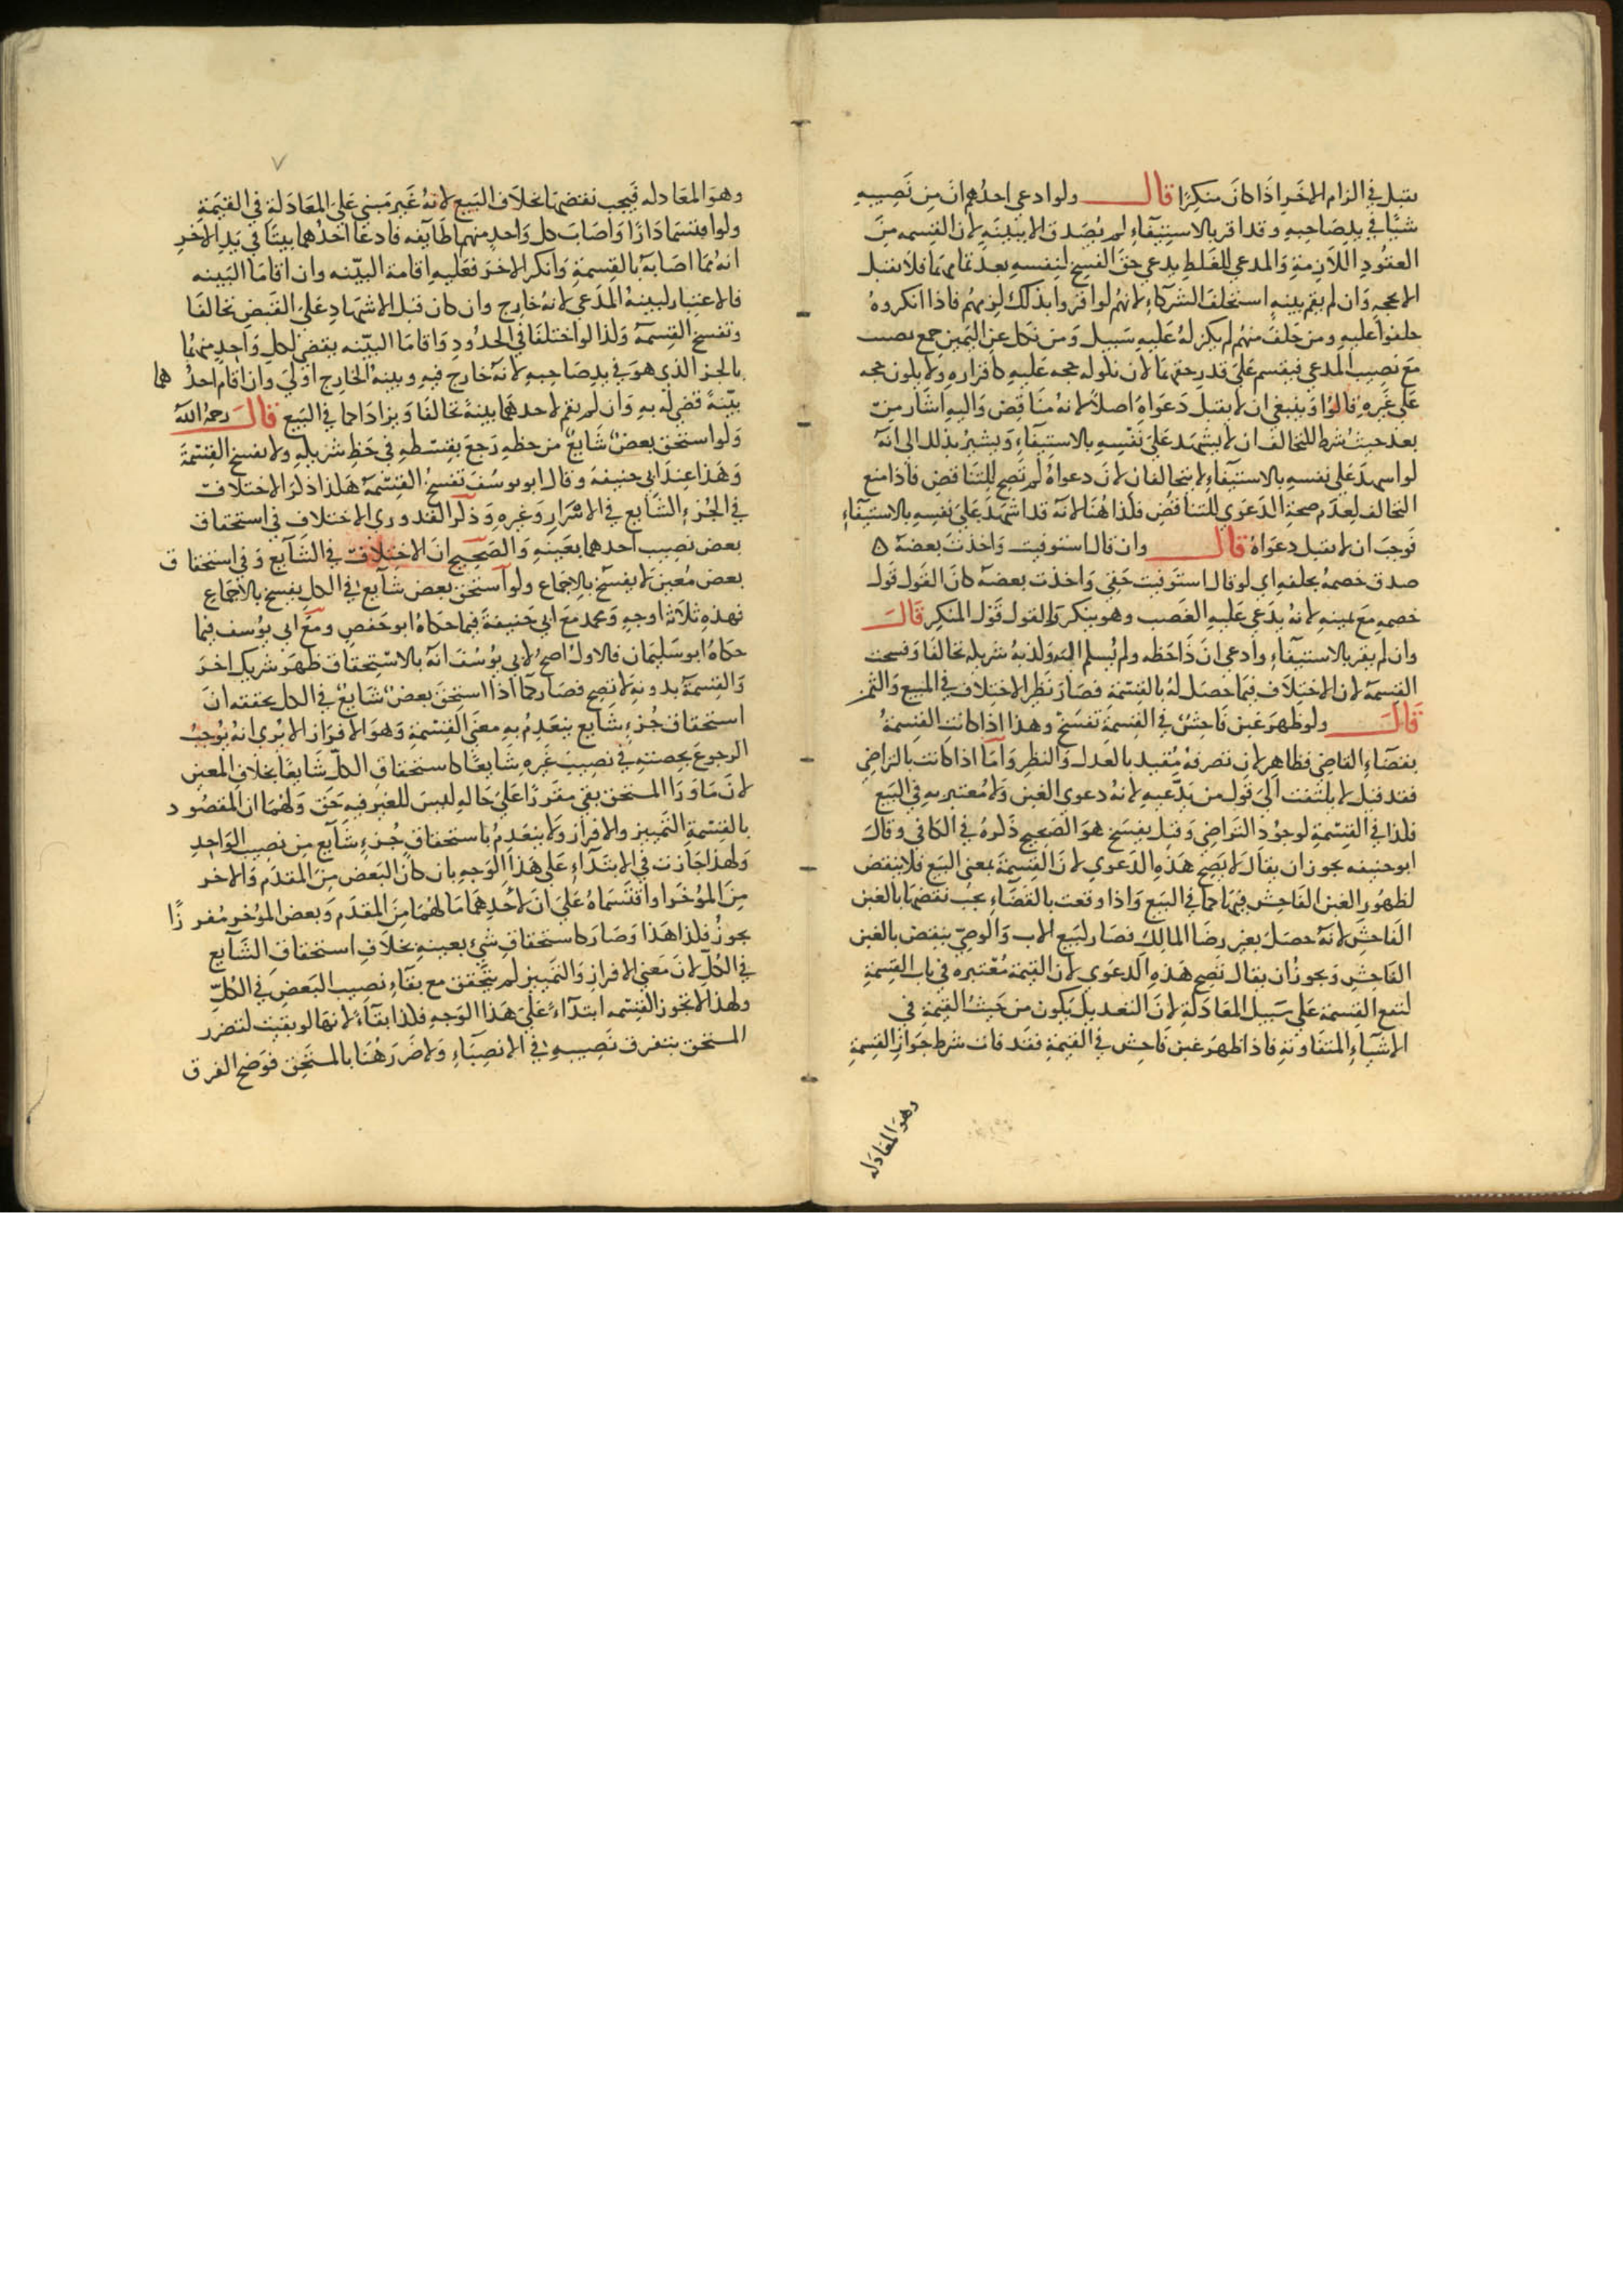 يقبل في الزام الاخر اذا كان منكرا قال ولو ادعى احدهم ان من نصيبه
شيأ في يد صاحبه وقد اقر بالاستيفاء لم يصدق الا ببينة لان القسمه من
العقود اللازمة والمدعي للغلط يدعي حق الفسخ لنفسه بعد تمامها فلا يقبل
الا بحجه وان لم يقم بينه استحلف الشركاء لانهم لو اقروا بذلك لزمهم فاذا انكروه
حلفوا عليه ومن حلف منهم لم يكن له عليه سبيل ومن نكل عن اليمين جمع نصيب
مع نصيب المدعي فيقسم على قدر حقهما لان نكوله حجه عليه كاقراره ولا يكون حجه
على غيره قالوا وينبغي ان لا يقبل دعواه اصلا لانه مناقض واليه اشار من
بعد حيث شرط للتحالف ان لا يشهد على نفسه بالاستيفاء ويشير بذلك الى انه
لو اشهد على نفسه بالاستيفاء لا يتحالفان لان دعواه لم تصح للتناقض فاذا منع
التحالف لعدم صحة الدعوى للتناقض فكذا هنا لانه قد اشهد على نفسه بالاستيفاء
فوجب ان لا يقبل دعواه قال وان قال استوفيت واخذت بعضه ه
صدق خصمه بحلفه اي لو قال استوفيت حقي واخذت بعضه كان القول قول
خصمه مع يمينه لانه يدعي عليه الغصب وهو ينكر والقول قول المنكر قال
وان لم يقر بالاستيفاء وادعى ان ذا حظه ولم يسلم اليه وكذبه شريكه تحالفا وفسخت
القسمة لان الاختلاف فيما حصل له بالقسمة فصار نظير الاختلاف في المبيع والثمن
قال ولو ظهر غبن فاحش في القسمة تفسخ وهذا اذا كانت القسمة
بقضاء القاضي فظاهر لان تصرفه مقيد بالعدل والنظر واما اذا كانت بالتراضي
فقد قيل لا يلتفت الى قول من يدعيه لانه دعوى الغبن ولا معتبر به في البيع
فكذا في القسمة لوجود التراضي وقيل يفسخ هو الصحيح ذكره في الكافي وقال
ابو حنيفه يجوز ان يقال لا يصح هذه الدعوى لان القسمة بمعنى البيع فلا ينقض
لظهور الغبن الفاحش فيها كما في البيع واذا وقعت بالقضاء يجب نقضها بالغبن
الفاحش لانه حصل بغير رضا المالك فصار كبيع الاب والوصي ينقض بالغبن
الفاحش ويجوز ان يقال تصح هذه الدعوى لان القيمة معتبره في باب القسمة
لتقع القسمة على سبيل المعادلة لان التعديل يكون من حيث القيمة في
الاشياء المتفاوتة فاذا ظهر غبن فاحش في القيمة فقد فات شرط جواز القسمة
وهو المعادله
٧
وهو المعادله فيجب نقضها بخلاف البيع لانه غير مبني على المعادلة في القيمة
ولو اقتسما دارا واصاب كل واحد منهما طايفه فادعا احدهما بيتا في يد الاخر
انه مما اصابه بالقسمة وانكر الاخر فعليه اقامة البينه وان اقاما البينه
فالاعتبار لبينة المدعي لانه خارج وان كان قبل الاشهاد على القبض تحالفا
وتفسخ القسمة وكذا لو اختلفا في الحدود واقاما البينه يقضى لكل واحد منهما
بالجز الذي هو في يد صاحبه لانه خارج فيه وبينة الخارج اولى وان اقام احد هما
بينة قضي له به وان لم يقم لاحدهما بينة تحالفا وترادا كما في البيع قال رحمه الله
ولو استحق بعض شايع من حظه رجع بقسطه في حظ شريكه ولا تفسخ القسمة
وهذا عند ابي حنيفة وقال ابو يوسف تفسخ القسمة هكذا ذكر الاختلاف
في الجزء الشايع في الاسرار وغيره وذكر القدوري الاختلاف في استحقاق
بعض نصيب احدهما بعينه والصحيح ان الاختلاف في الشايع وفي استحقا ق
بعض معين لا يفسخ بالاجماع ولو استحق بعض شايع في الكل يفسخ بالاجماع
فهذه ثلاثة اوجه ومحمد مع ابي حنيفة فيما حكاه ابو حفص ومع ابي يوسف فيما
حكاه ابو سليمان فالاول اصح لابي يوسف انه بالاستحقاق ظهر شريك اخر
والقسمة بدونه لا تصح فصار كما اذا استحق بعض شايع في الكل يحققه ان
استحقاق جزء شايع ينعدم به معنى القسمة وهو الافراز الا يرى انه يوجب
الرجوع بحصته في نصيب غيره شايعا كاستحقاق الكل شايعا بخلاف المعين
لان ما ورا المستحق بقي مفرزا على حاله ليس للغير فيه حق ولهما ان المقصو د
بالقسمة التمييز والافراز ولا ينعدم باستحقاق جزء شايع من نصيب الواحد
ولهذا جازت في الابتداء على هذا الوجه بان كان البعض من المقدم والاخر
من المؤخر واقتسماه على ان لاحدهما ما لهما من المقدم وبعض المؤخر مفر زا
يجوز فكذا هذا وصار كاستحقاق شئ بعينه بخلاف استحقاق الشايع
في الكل لان معنى الافراز والتمييز لم يتحقق مع بقاء نصيب البعض في الكل
ولهذا لا تجوز القسمه ابتداء على هذا الوجه فكذا بقاء لانها لو بقيت لتضرر
المستحق بتفرق نصيبه في الانصباء ولا ضرر هنا بالمستحق فوضح الفرق